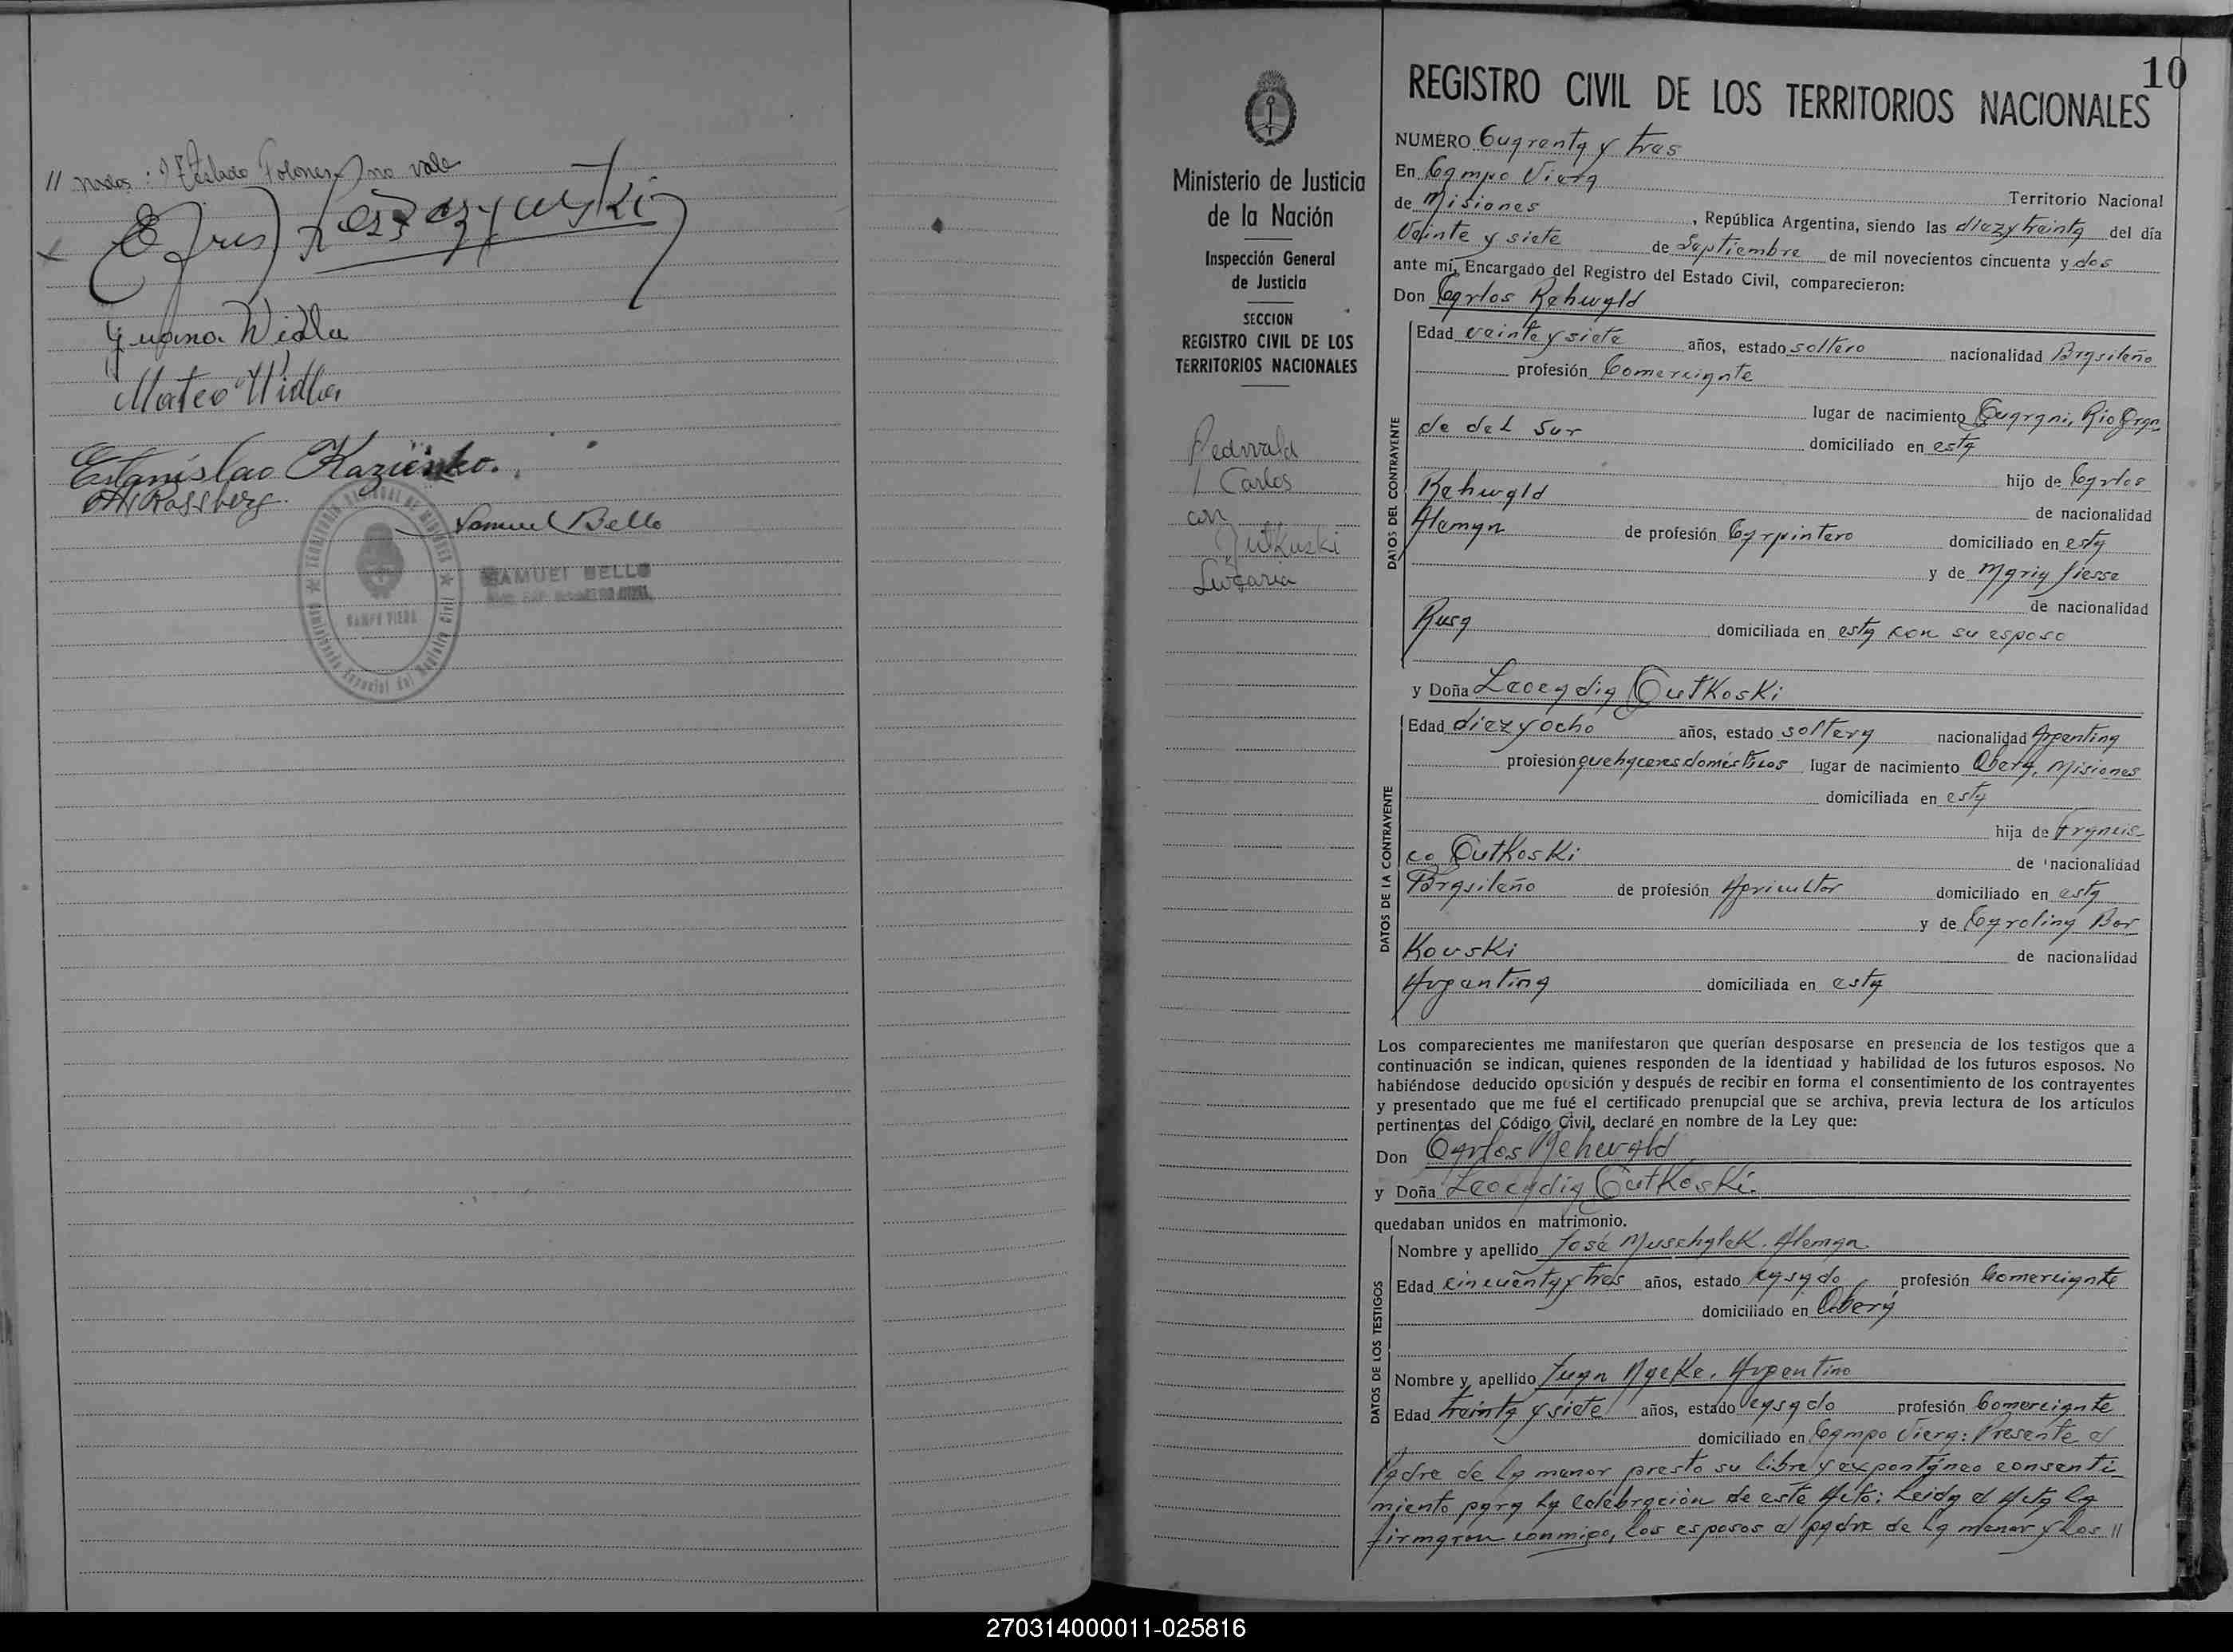 // nados: Estado Polones no vale
Juana Widla
Mateo Widla
Estanislao Kazienko.
Rossberg
Samuel Bello
SAMUEL BELLO
CAMPO VIERA
10
Ministerio de Justicia
de la Nación
Inspección General
de Justicia
SECCION
REGISTRO CIVIL DE LOS
TERRITORIOS NACIONALES
Carlos
con
REGISTRO CIVIL DE LOS TERRITORIOS NACIONALES
NUMERO Cuarenta y tres
En Campo Viera
Territorio Nacional
de Misiones, República Argentina, siendo las diez y treinta del día
Veinte y siete de Septiembre de mil novecientos cincuenta y dos
ante mí, Encargado del Registro del Estado Civil, comparecieron:
Don Carlos Rehwald
DATOS DEL CONTRAYENTE
Edad veinte y siete años, estado soltero nacionalidad Brasileño
profesión Comerciante
lugar de nacimiento Guarani, Rio Gran
de del Sur domiciliado en esta
hijo de Carlos
Rehwald de nacionalidad
Aleman de profesión Carpintero domiciliado en esta
y de Maria
de nacionalidad
Rusa domiciliada en esta con su esposo
y Doña Leocadia Gutkoski
DATOS DE LA CONTRAYENTE
Edad diez y ocho años, estado soltera nacionalidad Argentina
profesión quehaceres domésticos lugar de nacimiento Oberá, Misiones
domiciliada en esta
hija de Francis
co Gutkoski de nacionalidad
Brasileño de profesión Agricultor domiciliado en esta
y de Carolina Bor
Kovski de nacionalidad
Argentina domiciliada en esta
Los comparecientes me manifestaron que querían desposarse en presencia de los testigos que a
continuación se indican, quienes responden de la identidad y habilidad de los futuros esposos. No
habiéndose deducido oposición y después de recibir en forma el consentimiento de los contrayentes
y presentado que me fué el certificado prenupcial que se archiva, previa lectura de los artículos
pertinentes del Código Civil, declaré en nombre de la Ley que:
Don Carlos Rehwald
y Doña Leocadia Gutkoski
quedaban unidos en matrimonio.
DATOS DE LOS TESTIGOS
Nombre y apellido José Muschalek. Aleman
Edad cincuenta y tres años, estado casado, profesión Comerciante
domiciliado en Oberá
Nombre y apellido Juan. Argentino
Edad treinta y siete años, estado casado profesión Comerciante
domiciliado en Campo Viera: Presente el
Padre de la menor presto su libre y expontáneo consenti
miento para la celebración de este Acto: Leida el Acta la
firmaron conmigo, los esposos el padre de la menor y los //
270314000011-025816